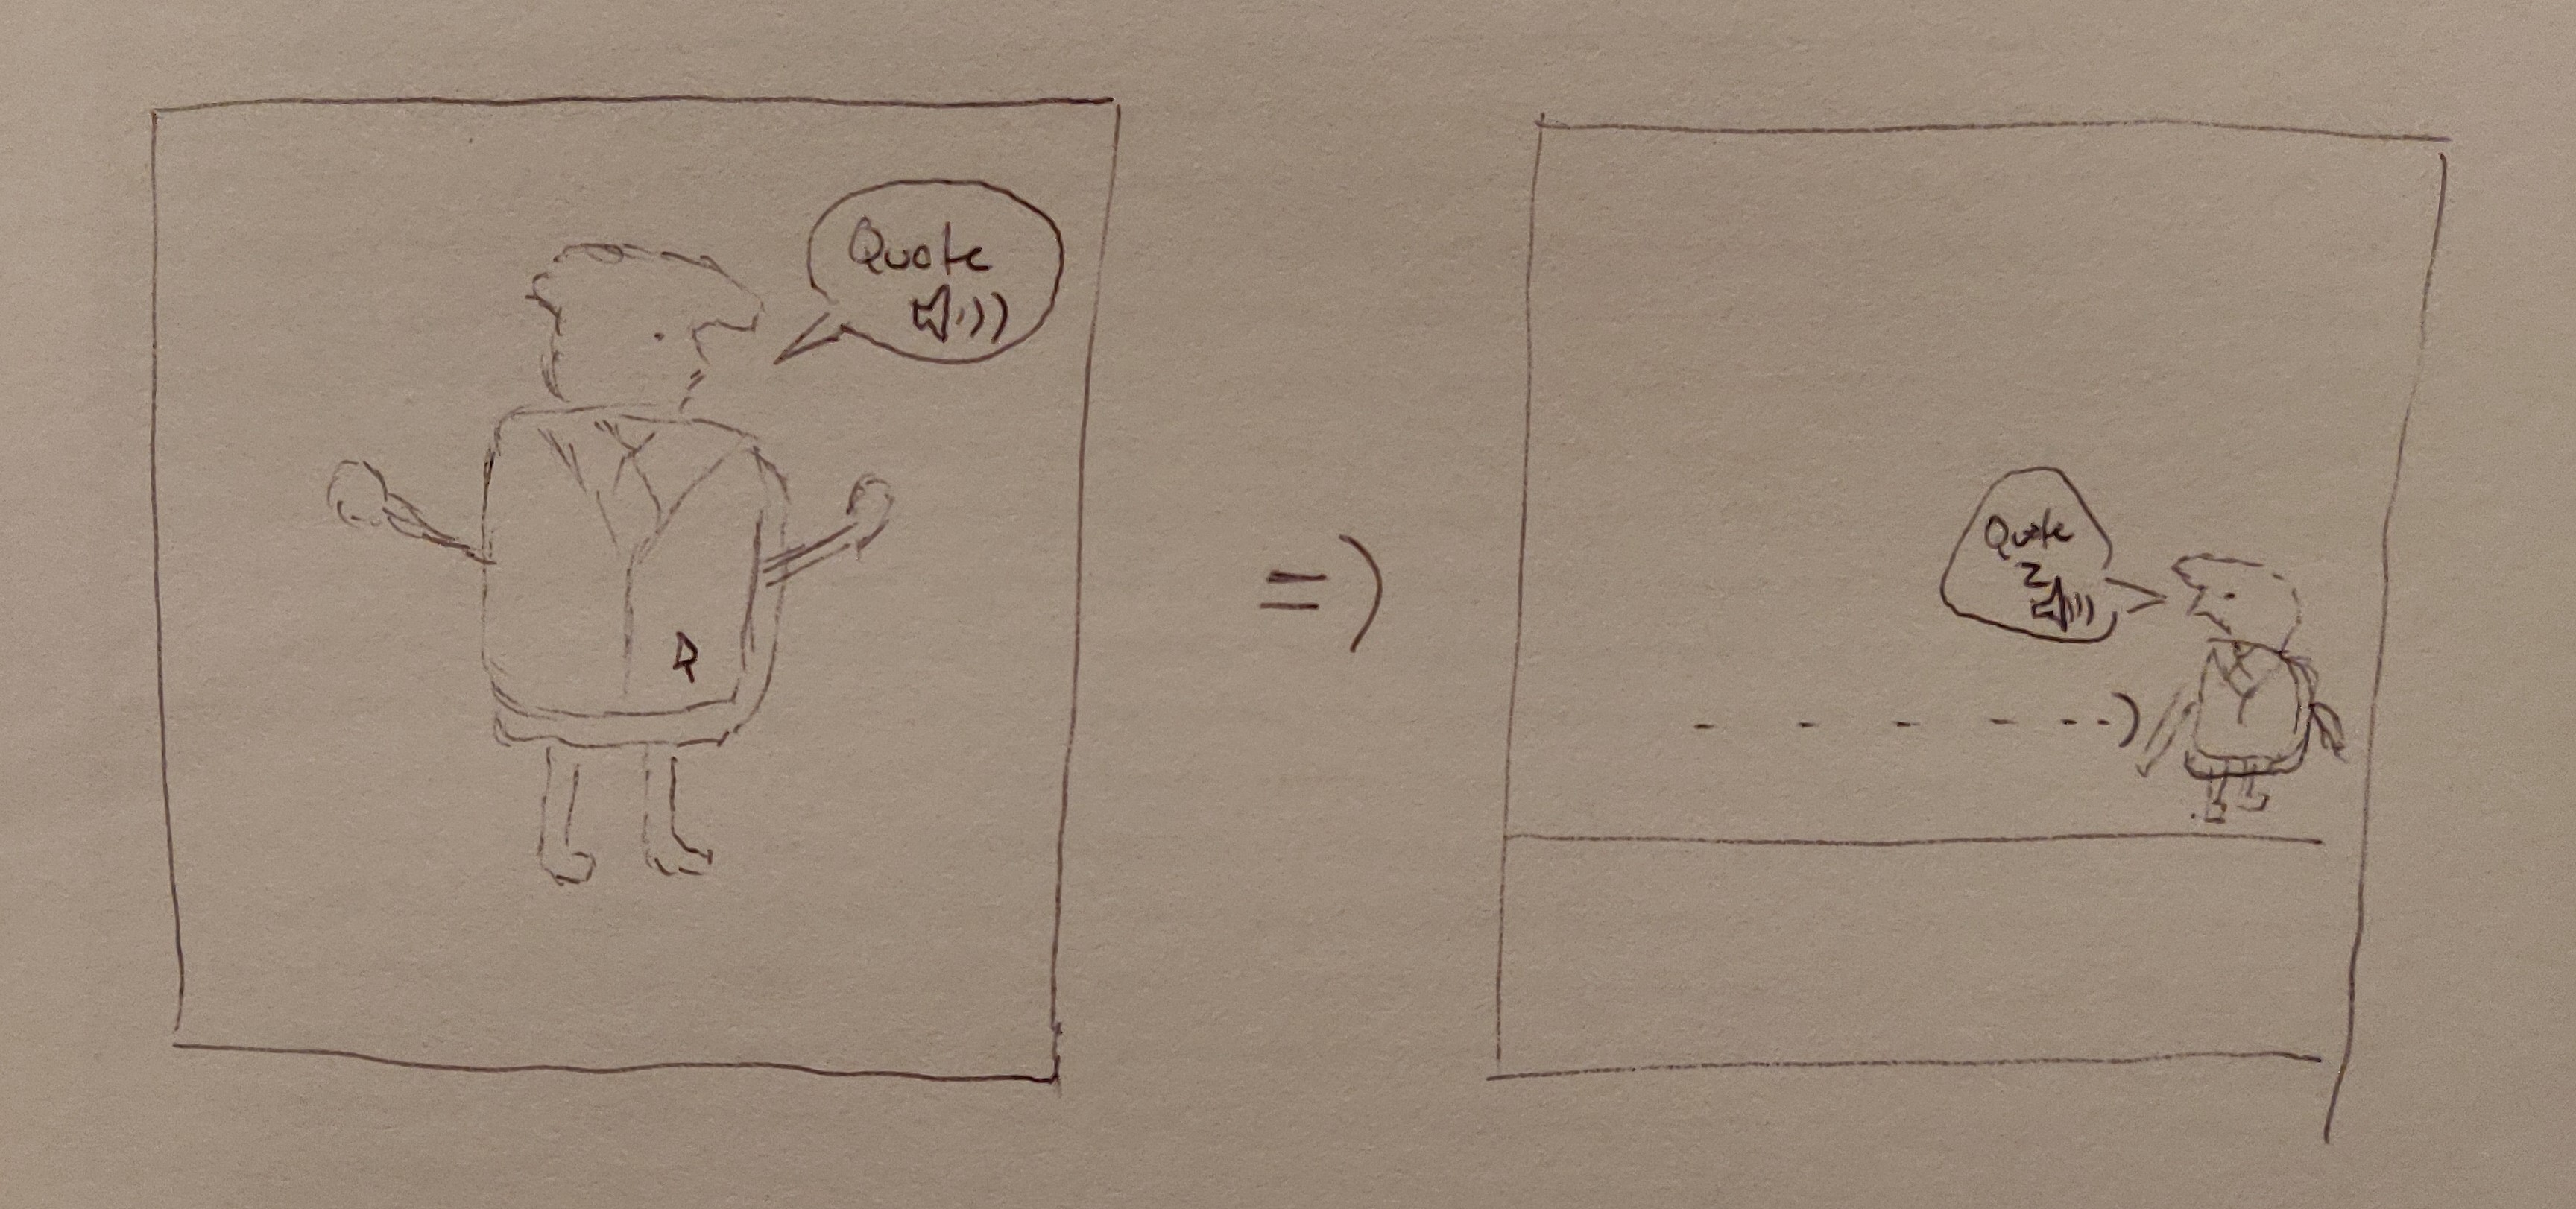 Quote
=)
Quote
2